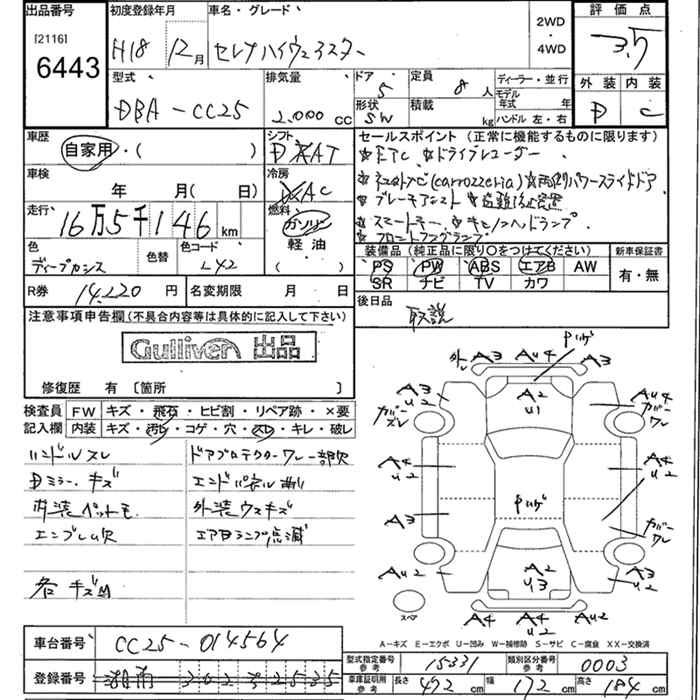 出品番号
[2116]
6443
初度登録年月
H18 12月
車名・グレード
セレナハイウェイスター
2WD
・
4WD
評価点
3.5
外装 内装
D C
型式
DBA-CC25
排気量
2.000 cc
ドア
5
形状
SW
定員
8 人
積載
kg
ディーラー・並行
モデル
年式 年
ハンドル 左・右
車歴
自家用・( )
車検
年 月( 日)
走行
16万5千146 km
色
色替
色コード
L42
シフト
AT
冷房
AC
燃料
ガソリン
軽油
( )
R券 14.220 円
名変期限 月 日
セールスポイント (正常に機能するものに限ります)
ETC ドライブレコーダー
(carrozzeria) パワースライドドア
ブレーキアシスト
スマートキー キセノンヘッドランプ
フロントフォグランプ
装備品 (純正品に限り○をつけてください)
PS PW ABS エアB AW
SR ナビ TV カワ
新車保証書
有・無
後日品
取説
注意事項申告欄(不具合内容等は具体的に記入して下さい)
Gulliver 出品
修復歴 有 〔箇所 〕
検査員
記入欄
FW キズ・飛石・ヒビ割・リペア跡・×要
内装 キズ・汚レ・コゲ・穴・スレ・キレ・破レ
ハンドルスレ
Dミラーキズ
内装ペットモ
エンブレム欠
各キズM
ドアプロテクターワレ一部欠
エンドパネル
外装ウスキズ
エアBランプ点滅
Pハゲ
外レ A3 AU4 A3
A3
U2
カバー
ズレ
A2
U1
AU4
カバー
ワレ
A4
U2
A4
U2
Pハゲ
A3
カバー
ワレ
AU2
A2
U3
A3
U2
スペア
A4 A4
U2 AU2
A-キズ E-エクボ U-凹み W-補修跡 S-サビ C-腐食 XX-交換済
車台番号 CC25-014564
登録番号 湘南 302 2535
型式指定番号
参考
15331
類別区分番号
参考
0003
車庫証明用
参考
長さ 472 cm 幅 172 cm 高さ 184 cm